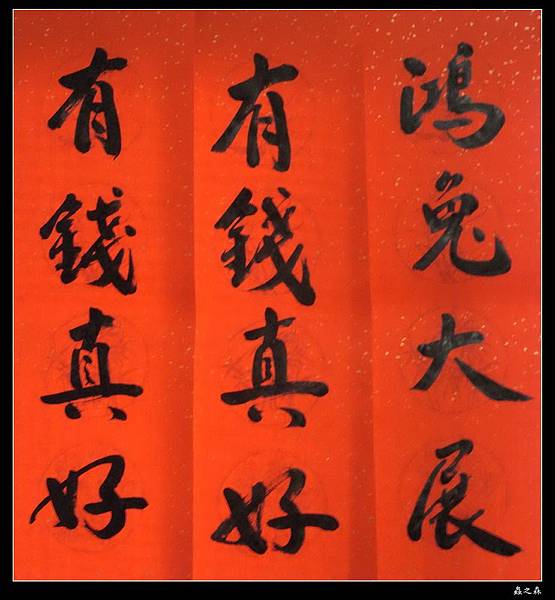 鴻兔大展
有錢真好
有錢真好
蟲之森